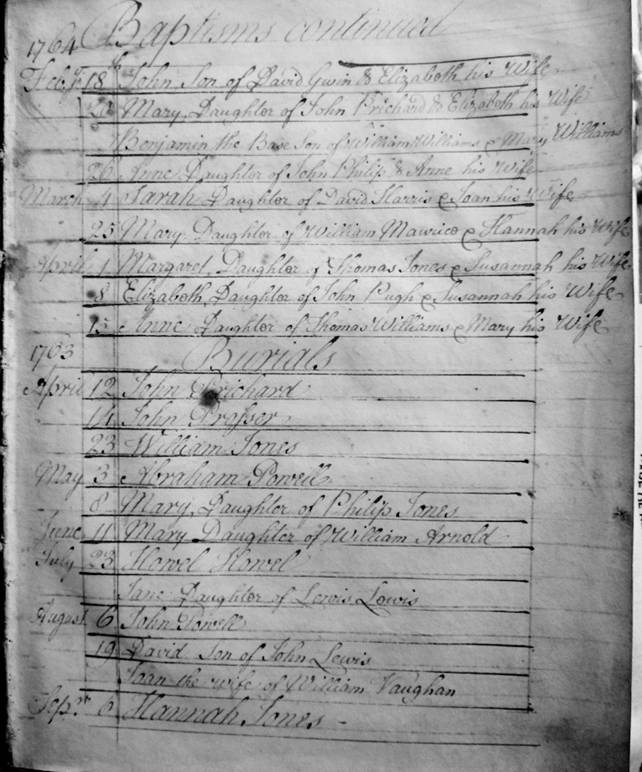 1764 Baptisms continued
Feb.y 18 John Son of David Gwin & Elizabeth his Wife
Mary Daughter of John Prichard & Elizabeth his Wife
Benjamin the Base Son of William Williams & Mary Williams
26 Anne Daughter of John Philip & Anne his Wife
March 4 Sarah Daughter of David Harris & Joan his Wife
25 Mary Daughter of William Maurice & Hannah his Wife
April 1 Margaret Daughter of Thomas Jones & Susannah his Wife
8 Elizabeth Daughter of John Pugh & Susannah his Wife
15 Anne Daughter of Thomas Williams & Mary his Wife
1763 Burials
April 12 John Prichard
14 John Prosser
23 William Jones
May 3 Abraham Powell
8 Mary Daughter of Philip Jones
June 11 Mary Daughter of William Arnold
July 23 Howel Howel
Jane Daughter of Lewis Lewis
August 6 John Powell
19 David Son of John Lewis
Joan the wife of William Vaughan
Sep.r 6 Hannah Jones